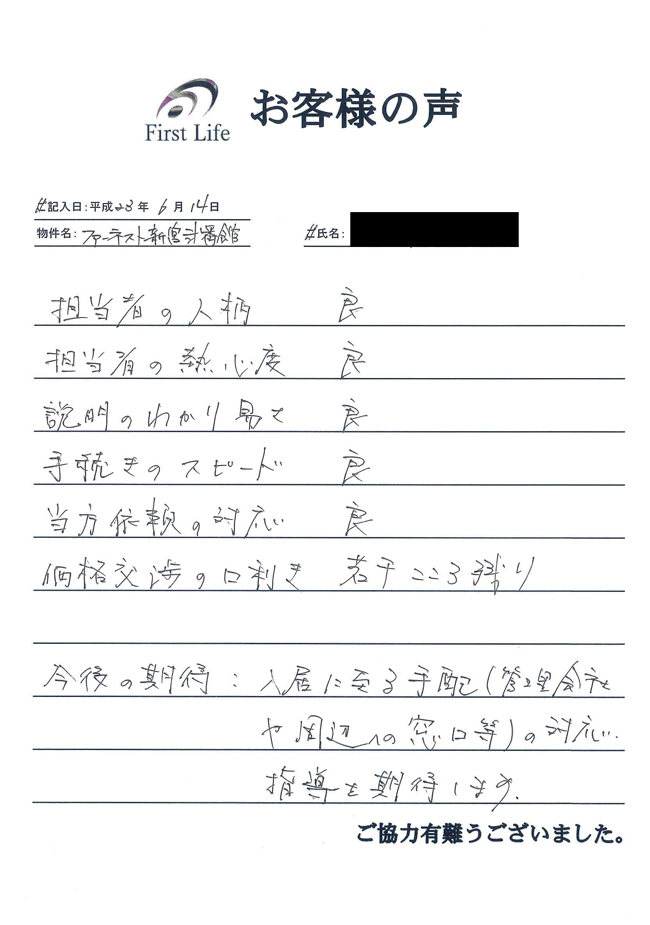 First Life
お客様の声
#記入日:平成23年 6月 14日
物件名: ファーネスト新宮弐番館
#氏名:
担当者の人柄 良
担当者の熱心度 良
説明のわかり易さ 良
手続きのスピード 良
当方依頼の対応 良
価格交渉の口利き 若干こころ残り
今後の期待: 入居に至る手配(管理会社
や周辺への窓口等)の対応.
指導を期待します.
ご協力有難うございました。